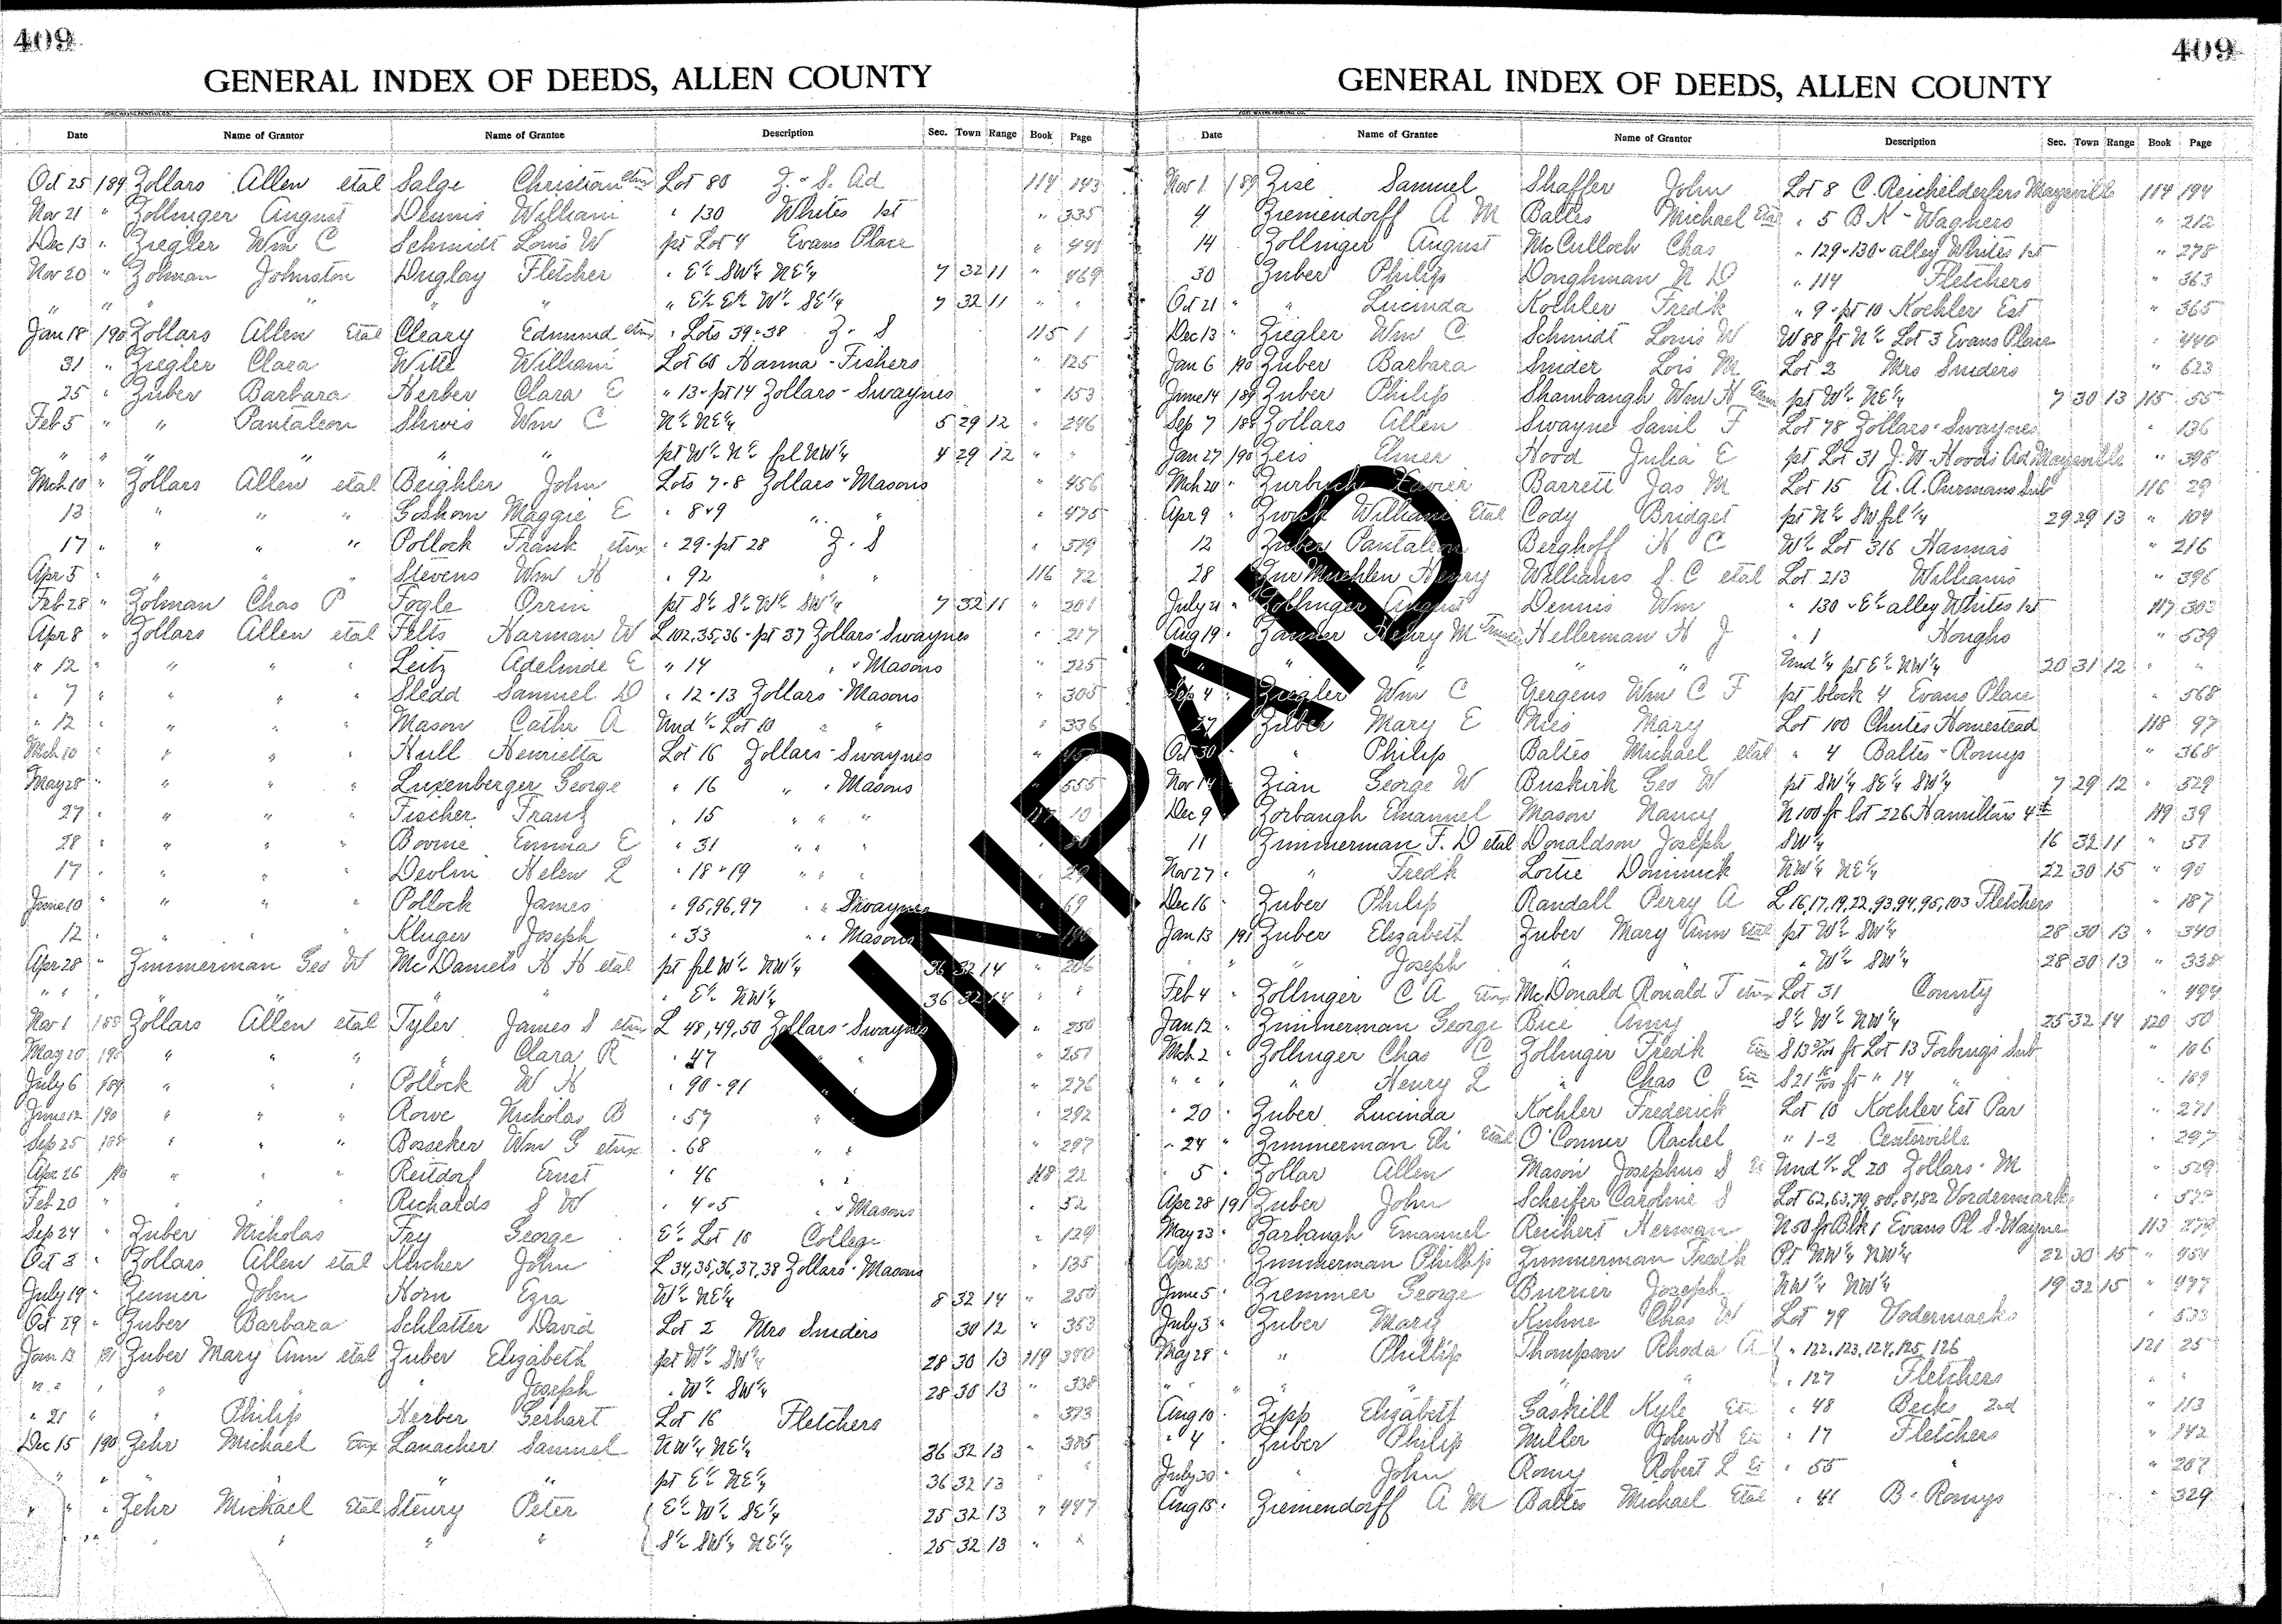 409
GENERAL INDEX OF DEEDS, ALLEN COUNTY
Date Name of Grantor Name of Grantee Description Sec. Town Range Book Page
Oct 25 189 Zollars Allen etal Salge Christian etux Lot 80 Z. " S. Ad 114 143
Nov 21 " Zollinger August Dennis William " 130 Whites 1st " 335
Dec 13 " Ziegler Wm C Schmidt Louis W pt Lot 4 Evans Place " 441
Nov 20 " Zolman Johnston Fletcher " E½ SW¼ NE¼ 7 32 11 " 469
" " " " " " " E½ E½ W½ SE¼ 7 32 11 " "
Jan 18 190 Zollars Allen Etal Cleary Edmund etux " Lots 39 " 38 Z " S 115 1
31 " Ziegler Clara Witte William Lot 60 Hanna - Fishers " 125
25 " Zuber Barbara Herber Clara E " 13 " pt 14 Zollars - Swaynes " 153
Feb 5 " " Pantaleon Shivis Wm C N½ NE¼ 5 29 12 " 246
" " " " " " pt W½ N½ frl NW¼ 4 29 12 " "
Mch 10 " Zollars Allen etal Beighler John Lots 7 - 8 Zollars " Masons " 456
13 " " " Goshorn Maggie E " 8 " 9 " " " 475
17 " " " " Pollock Frank etux " 29 " pt 28 Z " S " 579
Apr 5 " " " " Stevens Wm H " 92 " " 116 72
Feb 28 " Zolman Chas P Fogle Orrin pt S½ S½ W½ SW¼ 7 32 11 " 301
Apr 8 " Zollars Allen etal Felts Harman W L 102, 35, 36 " pt 37 Zollars " Swaynes " 217
" 12 " " " " Leitz Adelinde E " 14 " " Masons " 225
" 7 " " " " Sledd Samuel D " 12 " 13 Zollars " Masons " 305
" 12 " " " " Mason Cathr A Und ½ Lot 10 " " " 336
Mch 10 " " " " Hull Henrietta Lot 16 Zollars - Swaynes "
May 28 " " " " Luxenberger George " 16 " " Masons 555
27 " " " " Fischer Franz " 15 " " " 10
28 " " " " Bovine Emma E " 31 " " "
17 " " " " Devlin Helen L " 18 " 19 " " " 29
June 10 " " " " Pollock James " 95, 96, 97 " " Swaynes 69
12 " " " " Kluger Joseph " 33 " " Masons
Apr 28 " Zimmerman Geo W McDaniels H H etal pt frl W½ NW¼ 36 32 14 " 206
" " " " " E½ NW¼ 36 32 14 " "
Nov 1 188 Zollars Allen etal Tyler James S etux L 48, 49, 50 Zollars - Swaynes " 250
May 20 190 " " " " Clara R " 47 " " 251
July 6 189 " " " Pollock W H " 90 - 91 " " 276
June 12 190 " " " Rowe Nicholas B " 57 " " 292
Sep 25 188 " " " Bosseker Wm G etux " 68 " " " 297
Apr 26 190 " " " Reitdorf Ernst " 46 " " 118 22
Feb 20 " " " " Richards S W " 4 " 5 " " Masons " 52
Sep 24 " Zuber Nicholas Fry George E½ Lot 10 College " 129
Oct 3 " Zollars Allen etal Kucher John L 34, 35, 36, 37, 38 Zollars " Masons " 135
July 19 " John Horn Ezra W½ NE¼ 8 32 14 " 250
Oct 29 " Zuber Barbara Schlatter David Lot 2 Mrs Sniders 30 12 " 353
Jan 13 191 Zuber Mary Ann etal Zuber Elizabeth pt W½ SW¼ 28 30 13 119 340
" " " " " Joseph " W½ SW¼ 28 30 13 " 338
" 21 " " Philip Herber Gerhart Lot 16 Fletchers " 373
Dec 15 190 Zehr Michael Etux Lanacher Samuel NW¼ NE¼ 36 32 13 " 385
" " " " " " pt E½ NE¼ 36 32 13 " "
" " " Zehr Michael Etal Steury Peter E½ W½ SE¼ 25 32 13 " 447
" " " " " " S½ SW¼ NE¼ 25 32 13 " "
409
GENERAL INDEX OF DEEDS, ALLEN COUNTY
Date Name of Grantee Name of Grantor Description Sec. Town Range Book Page
Nov 1 189 Zise Samuel Shaffer John Lot 8 C. Reichelderfers Maysville 114 194
4 Ziemendorff A M Baltes Michael Etal " 5 B K - Wagners " 212
14 Zollinger August McCulloch Chas " 129 " 130 " alley Whites 1st " 278
30 Zuber Philip Doughman N D " 114 Fletchers " 363
Oct 21 " " Lucinda Koehler Fredk " 9 " pt 10 Koehler Est " 365
Dec 13 " Ziegler Wm C Schmidt Louis W W 88 ft N½ Lot 3 Evans Place " 440
Jan 6 190 Zuber Barbara Snider Lois M Lot 2 Mrs Sniders " 623
June 14 189 Zuber Philip Shambaugh Wm H Etux pt W½ NE¼ 7 30 13 115 55
Sep 7 188 Zollars Allen Swayne Saml F Lot 78 Zollars - Swaynes " 136
Jan 27 190 Zeis Elmer Hood Julia E pt Lot 31 J. W. Hoods Ad Maysville " 398
Mch 20 " Zurbuch Xavier Barrett Jas M Lot 15 A. A. Purmans Sub 116 29
Apr 9 " Zwick William Etal Cody Bridget pt N½ SW frl ¼ 29 29 13 " 104
12 Zuber Pantaleon Berghoff H C W½ Lot 316 Hannas " 216
28 Zur Muehlen Henry Williams S. C etal Lot 213 Williams " 396
July 21 " Zollinger August Dennis Wm " 130 " E½ alley Whites 1st 117 303
Aug 19 " Zanner Henry M Trustee Hellerman H J " 1 Houghs " 539
" " " " " Und ¼ pt E½ NW¼ 20 31 12 " "
Sep 4 " Ziegler Wm C Gergens Wm C F pt block 4 Evans Place " 568
27 Zuber Mary E Nies Mary Lot 100 Chutes Homestead 118 97
Oct 30 " " Philip Baltes Michael etal " 4 Baltes - Romys " 368
Nov 14 Zian George W Buskirk Geo W pt SW¼ SE¼ SW¼ 7 29 12 " 529
Dec 9 Zorbaugh Emanuel Mason Nancy N 100 ft lot 226 Hamiltons 4th 119 39
11 Zimmerman F. D etal Donaldson Joseph SW¼ 16 32 11 " 51
Nov 27 " Fredk Lortie Dominick NW¼ NE¼ 22 30 15 " 90
Dec 16 Zuber Philip Randall Perry A L 16, 17, 19, 22, 93, 94, 95, 103 Fletchers " 187
Jan 13 191 Zuber Elizabeth Zuber Mary Ann Etal pt W½ SW¼ 28 30 13 " 340
" " " Joseph " " " W½ SW¼ 28 30 13 " 338
Feb 4 " Zollinger C A Etux McDonald Ronald T etux Lot 31 County " 494
Jan 12 " Zimmerman George Bice Amy S½ W½ NW¼ 25 32 14 120 50
Mch 2 " Zollinger Chas C Zollinger Fredk Etux S 13 ft Lot 13 Forbings Sub " 106
" " " " Henry L " Chas C Etux S 21 ft " 14 " " 109
" 20 " Zuber Lucinda Koehler Frederick Lot 10 Koehler Est Par " 271
" 24 " Zimmerman Eli Etal O'Conner Rachel " 1-2 Centerville " 297
5 " Zollar Allen Mason Josephus S Und ½ L 20 Zollars " M " 529
Apr 28 191 Zuber John Scheifer Caroline S Lot 62, 63, 79, 80, 81, 82 Vordermarks "
May 23 " Zarbaugh Emanuel Reichert Herman N 50 ft Blk 1 Evans Pl S. Wayne 113 279
Apr 25 " Zimmerman Phillip Zimmerman Fredk Pt NW¼ NW¼ 22 30 15 " 454
June 5 " Ziemmer George Burrier Joseph NW¼ NW¼ 19 32 15 " 477
July 3 " Zuber Mary Kuhne Chas W Lot 79 Vodermarks " 533
May 28 " " Phillip Thompson Rhoda A " 122, 123, 124, 125, 126 121 25
" " " " " " " 127 Fletchers " "
Aug 10 " Zipp Elizabeth Gaskill Kyle Etux " 48 Becks 2nd " 113
" 4 " Zuber Philip Miller John H Etux " 17 Fletchers " 142
July 30 " " John Romy Robert L Et " 55 " " 207
Aug 15 " Ziemendorff A M Baltes Michael Etal " 41 B " Romys " 329
UNPAID